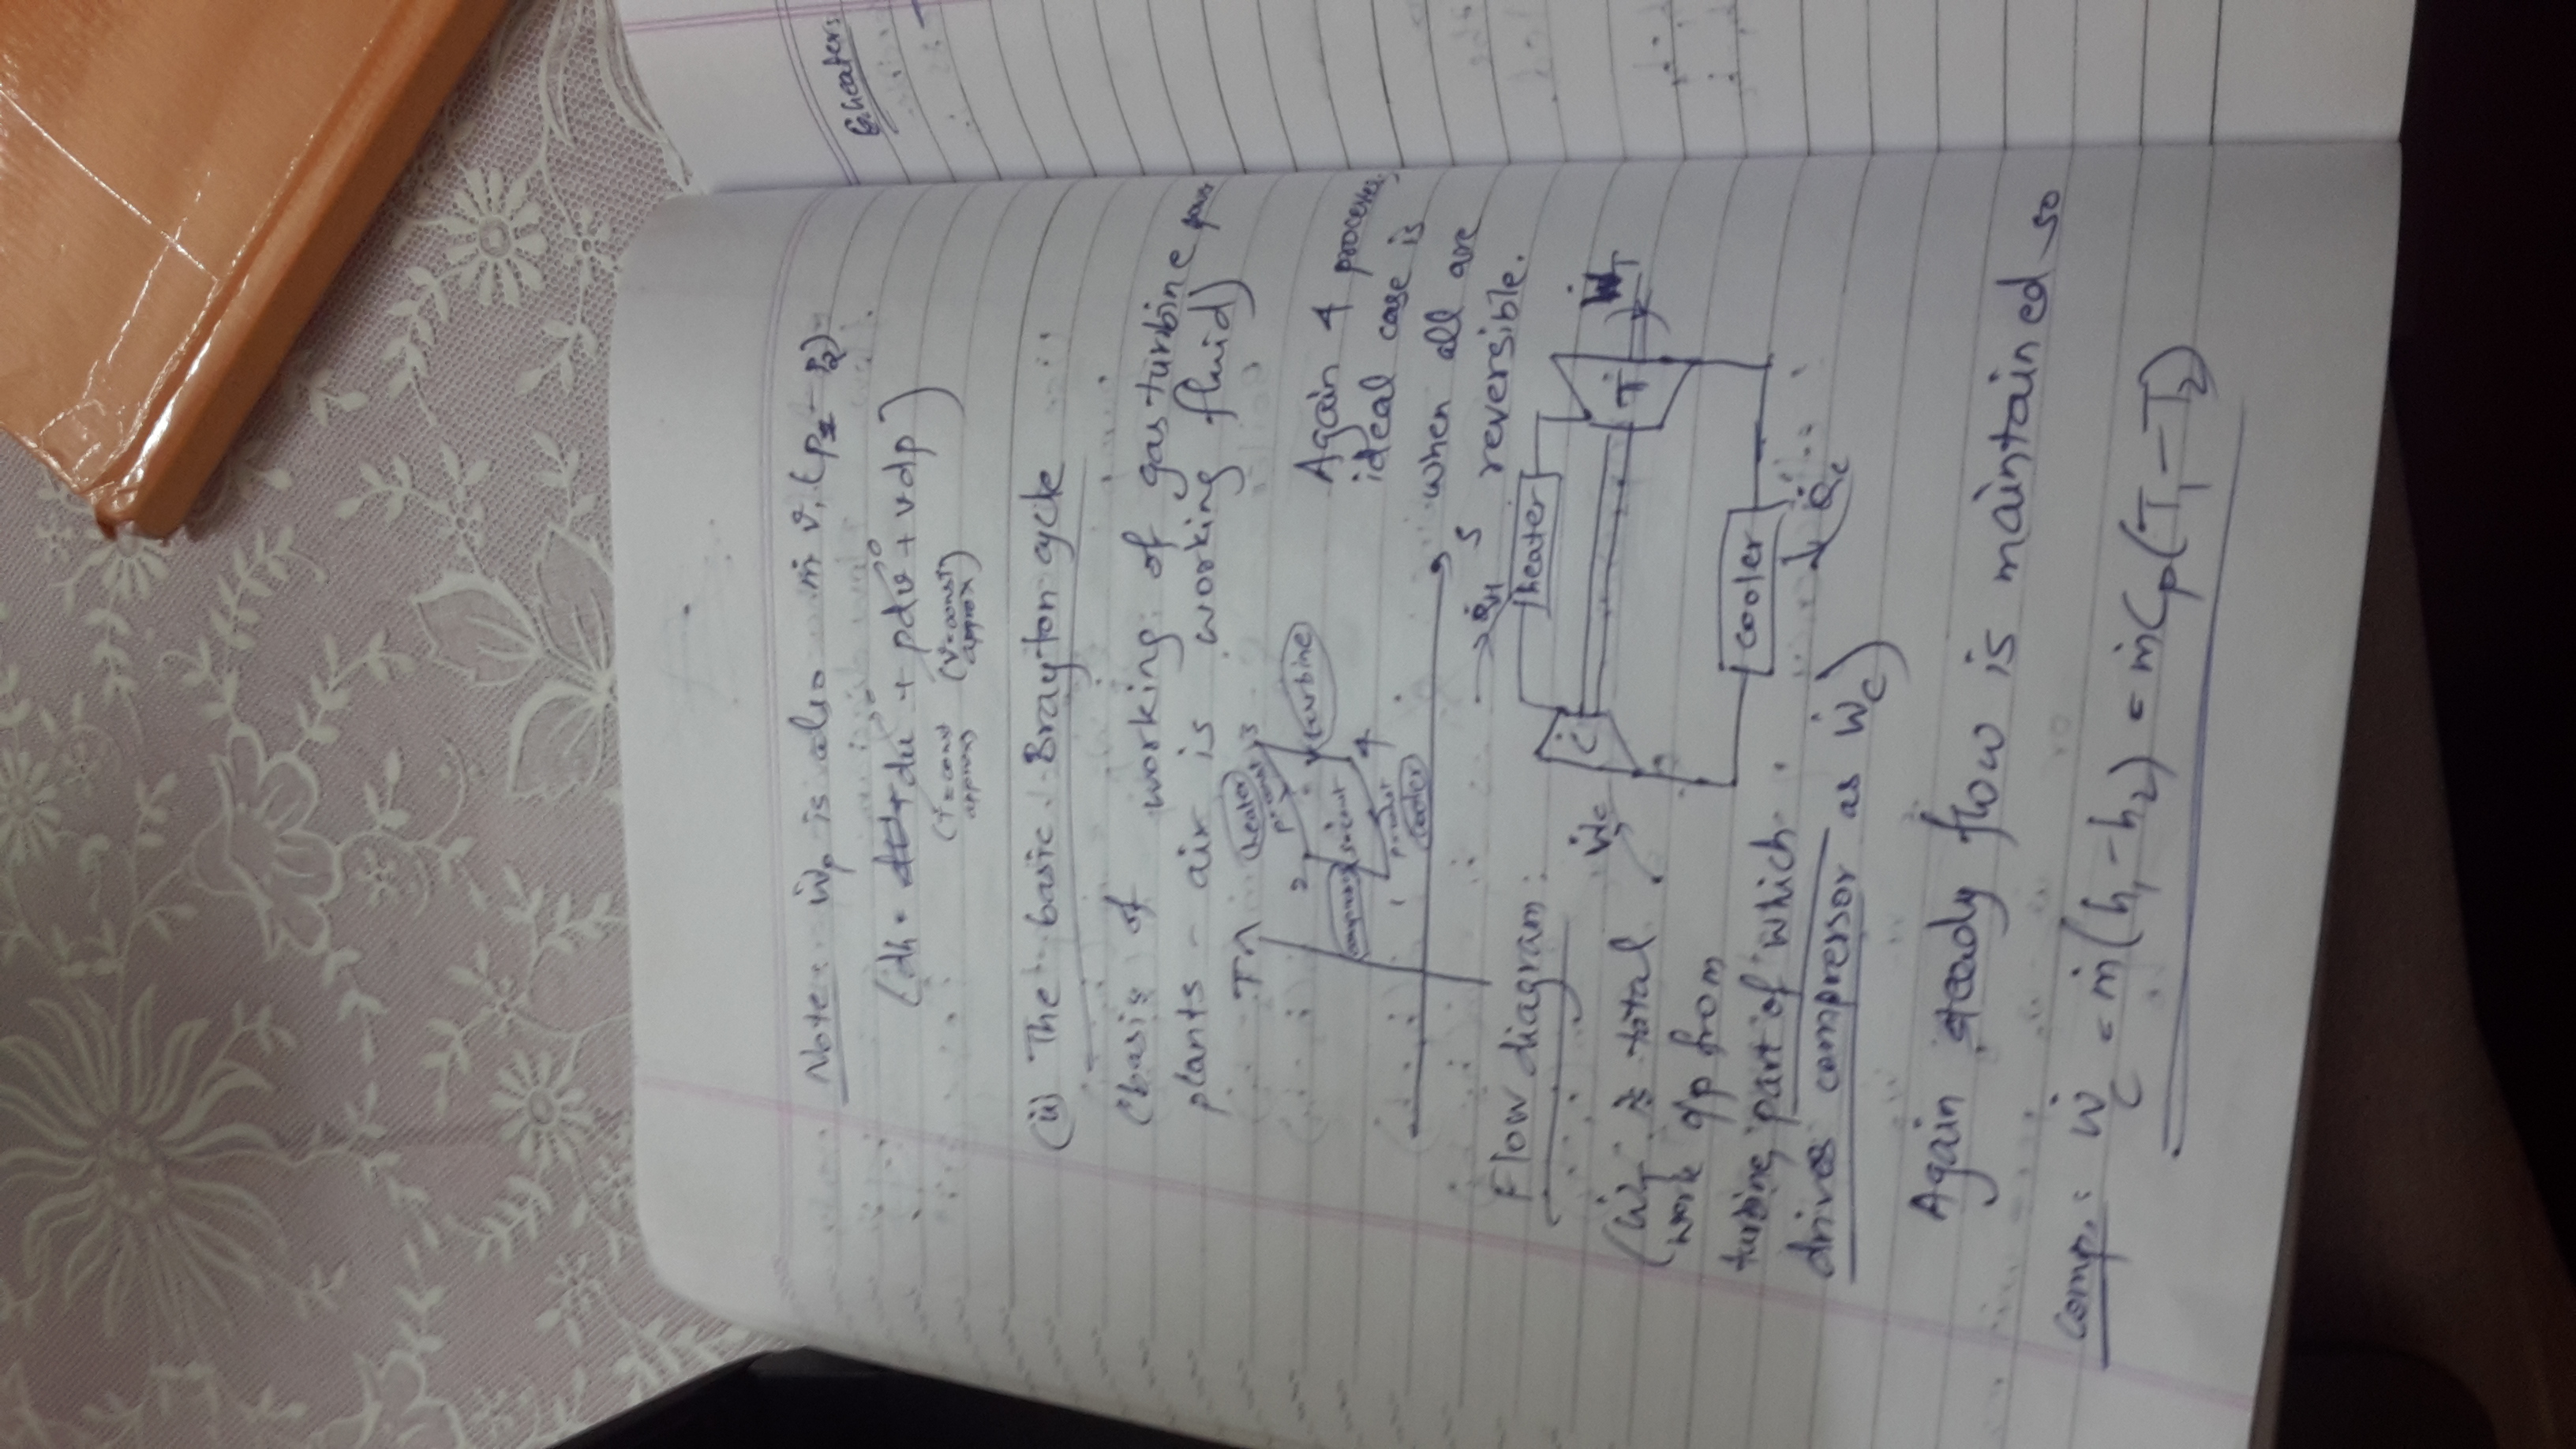 Note: Ẇp is also ṁ v₁ (p₁ - p₂)
(dh = du⁰ + pdv⁰ + vdp)
(T=const approx) (v=const approx)
(ii) The basic Brayton cycle
(basis of working of gas turbine power
plants - air is working fluid)
T
heater
p=const
3
2
turbine
compressor
s=const
4
1
p=const
cooler
s
Again 4 processes,
ideal case is
when all are
reversible.
Flow diagram:
Q̇H
heater
Ẇc
C
T
ẆT
cooler
Q̇c
(ẆT is total
work o/p from
turbine, part of which
drives compressor as Ẇc)
Again steady flow is maintained so
Comp.: Ẇc = ṁ(h₁-h₂) = ṁCp(T₁-T₂)
G.heaters